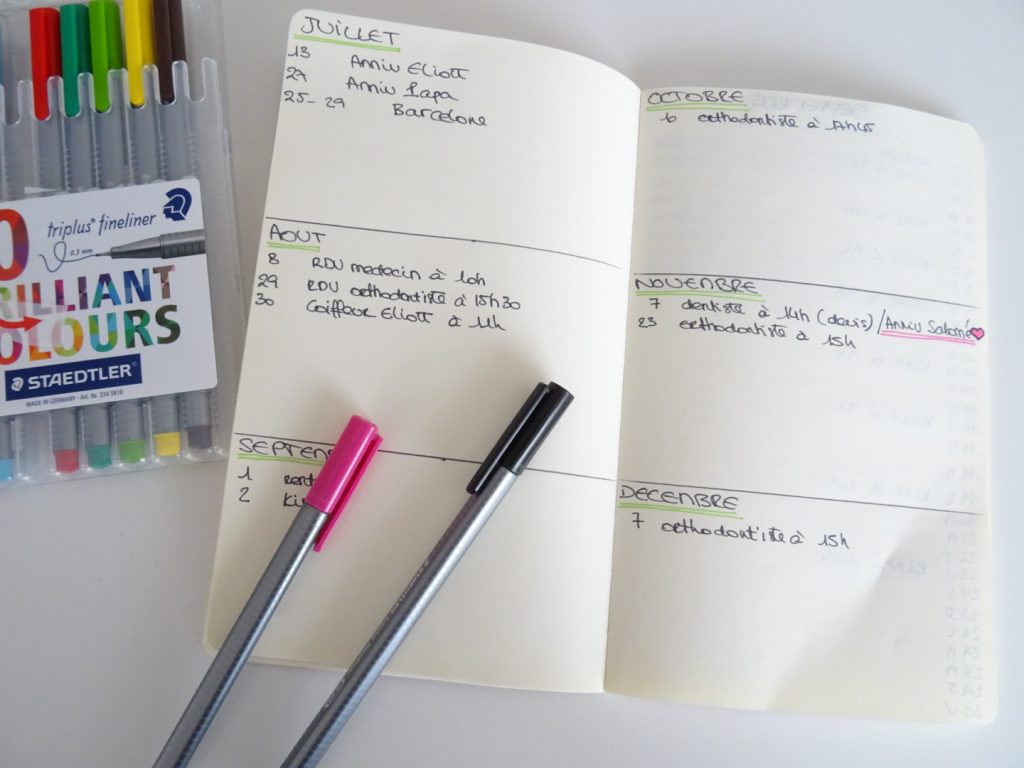 JUILLET
13 Anniv Eliott
27 Anniv Papa
25-29 Barcelone
AOUT
8 RDV medecin à 10h
29 RDV orthodontiste à 15h30
30 Coiffeur Eliott à 11h
SEPTEM
1
2
OCTOBRE
6 orthodontiste à 17h45
NOVEMBRE
7 dentiste à 14h (devis) / Anniv Salomé
23 orthodontiste à 15h
DECEMBRE
7 orthodontiste à 15h
triplus® fineliner
0.3 mm
0
RILLIANT
OLOURS
STAEDTLER
MADE IN GERMANY - Art. Nr. 334 SB10